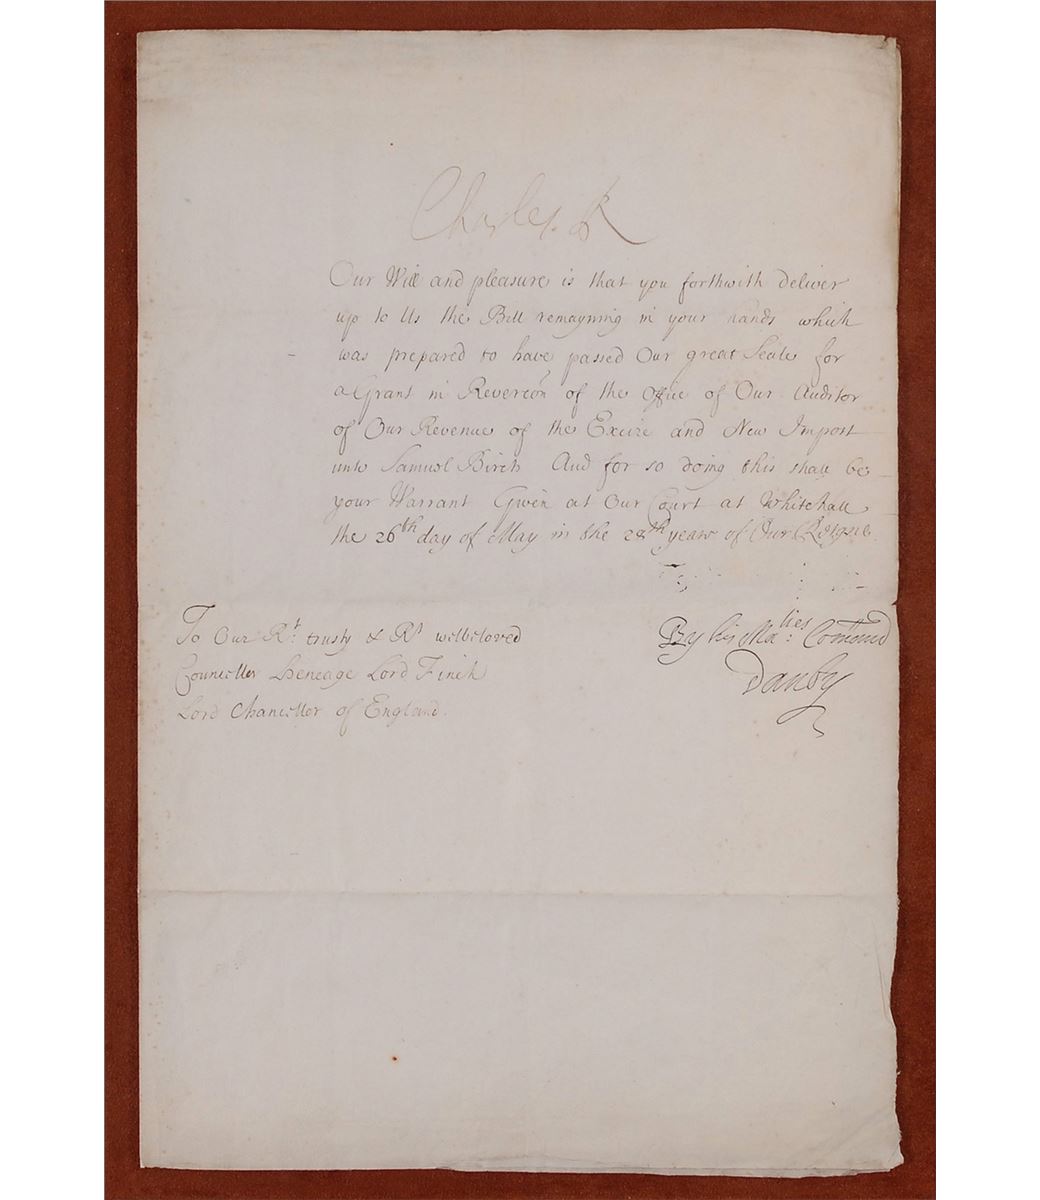 Charles R
Our Will and pleasure is that you forthwith deliver
up to Us the Bill remayning in your hands which
was prepared to have passed Our great Seale for
a Grant in Revercon of the Office of Our Auditor
of Our Revenue of the Excize and New Impost
unto Samuel Birch And for so doing this shall be
your Warrant Given at Our Court at Whitehall
the 26th day of May in the 28th yeare of Our Reigne
To Our Rt trusty & Rt welbeloved
Councellor Heneage Lord Finch
Lord Chancellor of England.
By his Maties Comand
Danby